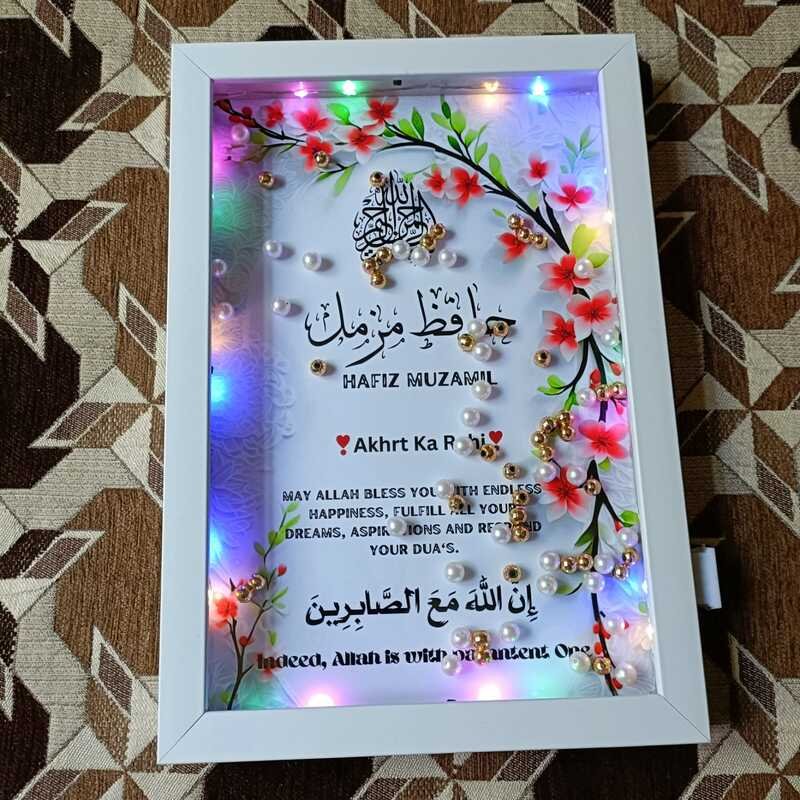 بسم الله الرحمن الرحيم
حافظ مزمل
HAFIZ MUZAMIL
Akhrt Ka Rahi
MAY ALLAH BLESS YOU WITH ENDLESS
HAPPINESS, FULFILL ALL YOUR
DREAMS, ASPIRATIONS AND RESPOND
YOUR DUA'S.
إِنَّ اللَّهَ مَعَ الصَّابِرِينَ
Indeed, Allah is with One